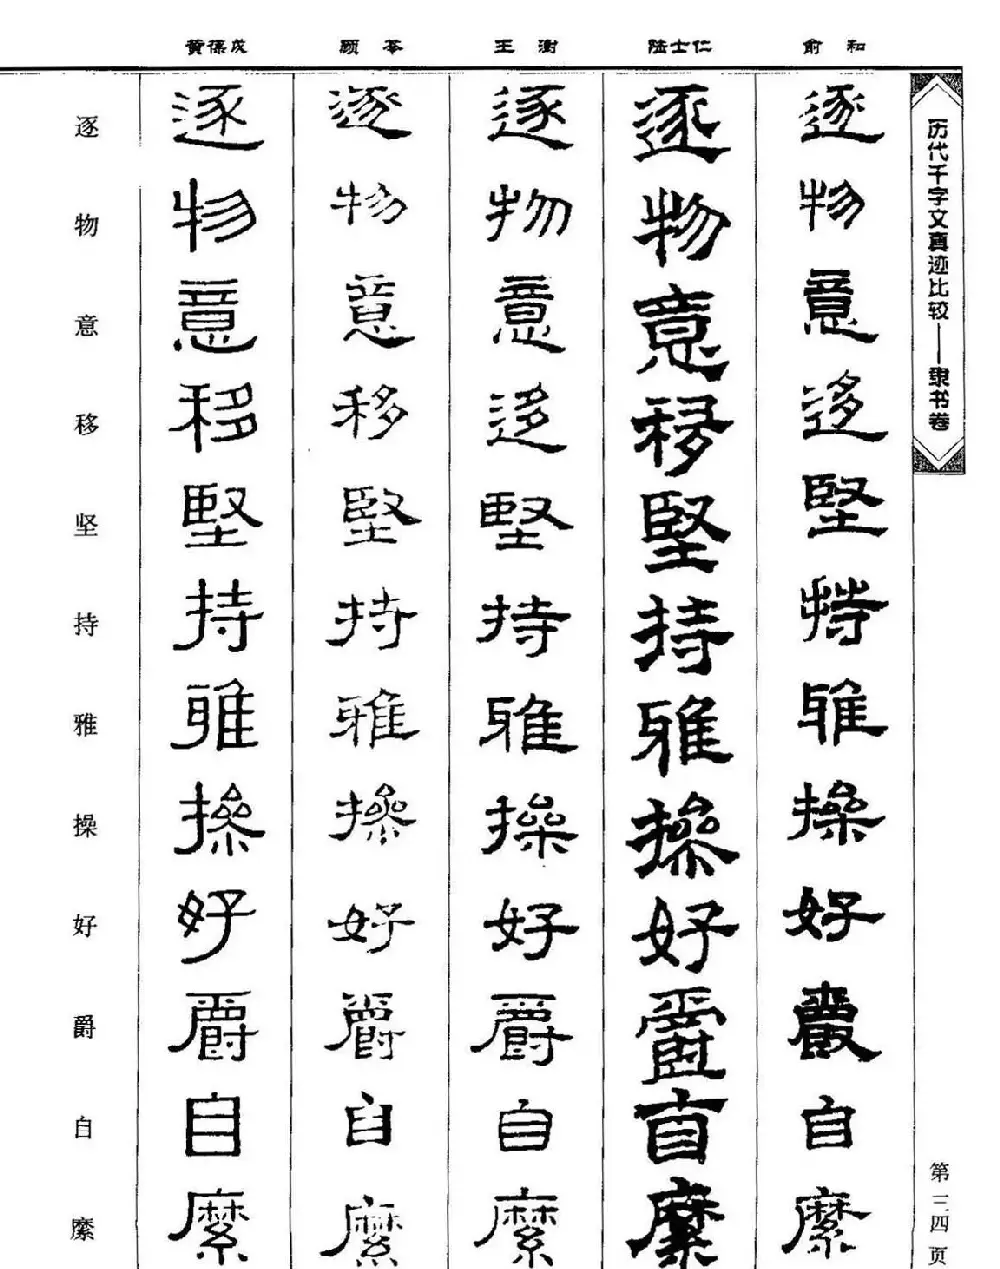 历代千字文真迹比较——隶书卷
第三四页
俞和
逐物意移堅持雅操好爵自縻
陆士仁
逐物意移堅持雅操好爵自縻
王澍
逐物意移堅持雅操好爵自縻
顾苓
逐物意移堅持雅操好爵自縻
黄葆戉
逐物意移堅持雅操好爵自縻
逐物意移坚持雅操好爵自縻